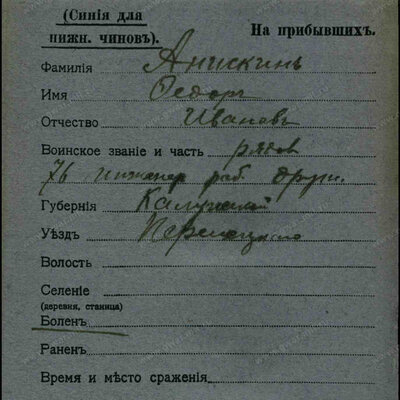 (Синія для
нижн. чиновъ).
На прибывшихъ.
Фамилія Анискинъ
Имя Федоръ
Отчество Ивановъ
Воинское званіе и часть рядов
76 инженер раб. друж.
Губернія Калужской
Уѣздъ
Волость
Селеніе
(деревня, станица)
Боленъ
Раненъ
Время и мѣсто сраженія